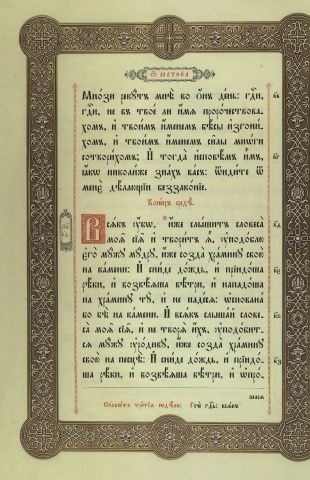 Ѿ МАТѲЕА
Мнози рекут мнѣ во ѻ҆́нъ день: гдⷭ҇и,
гдⷭ҇и, не в твое ли и҆мѧ пророчествова-
хомъ, и҆ твоимъ и҆менемъ бѣсы и҆згони-
хомъ, и҆ твоимъ и҆менемъ силы мнѡги
сотворихомъ; И҆ тогда и҆сповѣмъ и҆мъ,
ꙗ҆кѡ николиже знахъ васъ: ѿидите ѿ
менє дѣлающїи беззаконїе.
Конецъ
Всѧкъ ᲂу҆бѡ, и҆же слышитъ словеса
моѧ сїѧ̑ и҆ творитъ ѧ҆̀, ᲂу҆подоблю
є҆го̀ мꙋжꙋ мꙋдрꙋ, и҆же созда храминꙋ свою
на камени: И҆ сниде дождь, и҆ прїидоша
рѣки, и҆ возвѣѧша вѣтри, и҆ нападоша
на храминꙋ тꙋ, и҆ не падесѧ: ѡ҆снована
бо бѣ на камени. И҆ всѧкъ слышай слове-
са моѧ сїѧ̑, и҆ не творѧ и҆̀хъ, ᲂу҆подобит-
сѧ мꙋжꙋ ᲂу҆родивꙋ, и҆же созда храминꙋ
свою на песцѣ: И҆ сниде дождь, и҆ прїидо-
ша рѣки, и҆ возвѣѧша вѣтри, и҆ ѡ҆про-
шасѧ
Сꙋббѡта третїѧ недѣли: Рече гдⷭ҇ь: всѧкъ